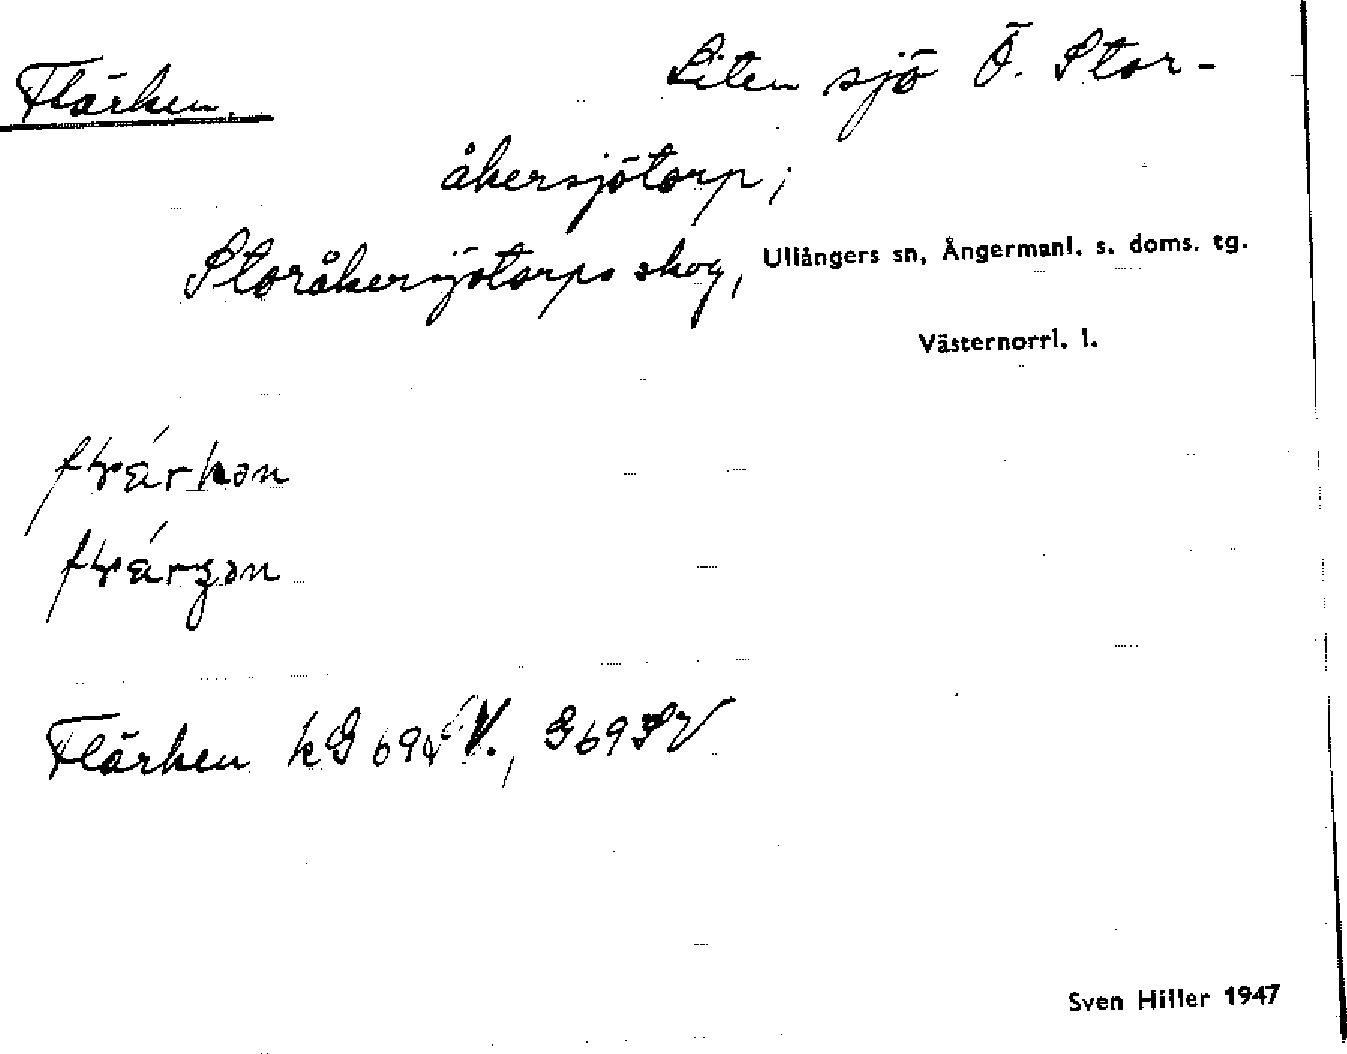 Flärken. Liten sjö Ö. Stor-
åkersjötorp;
Storåkersjötorps skog, Ullångers sn, Ångermanl. s. doms. tg.
Västernorrl. l.
Flärken kG 69 SV., G 69 SV
Sven Hiller 1947